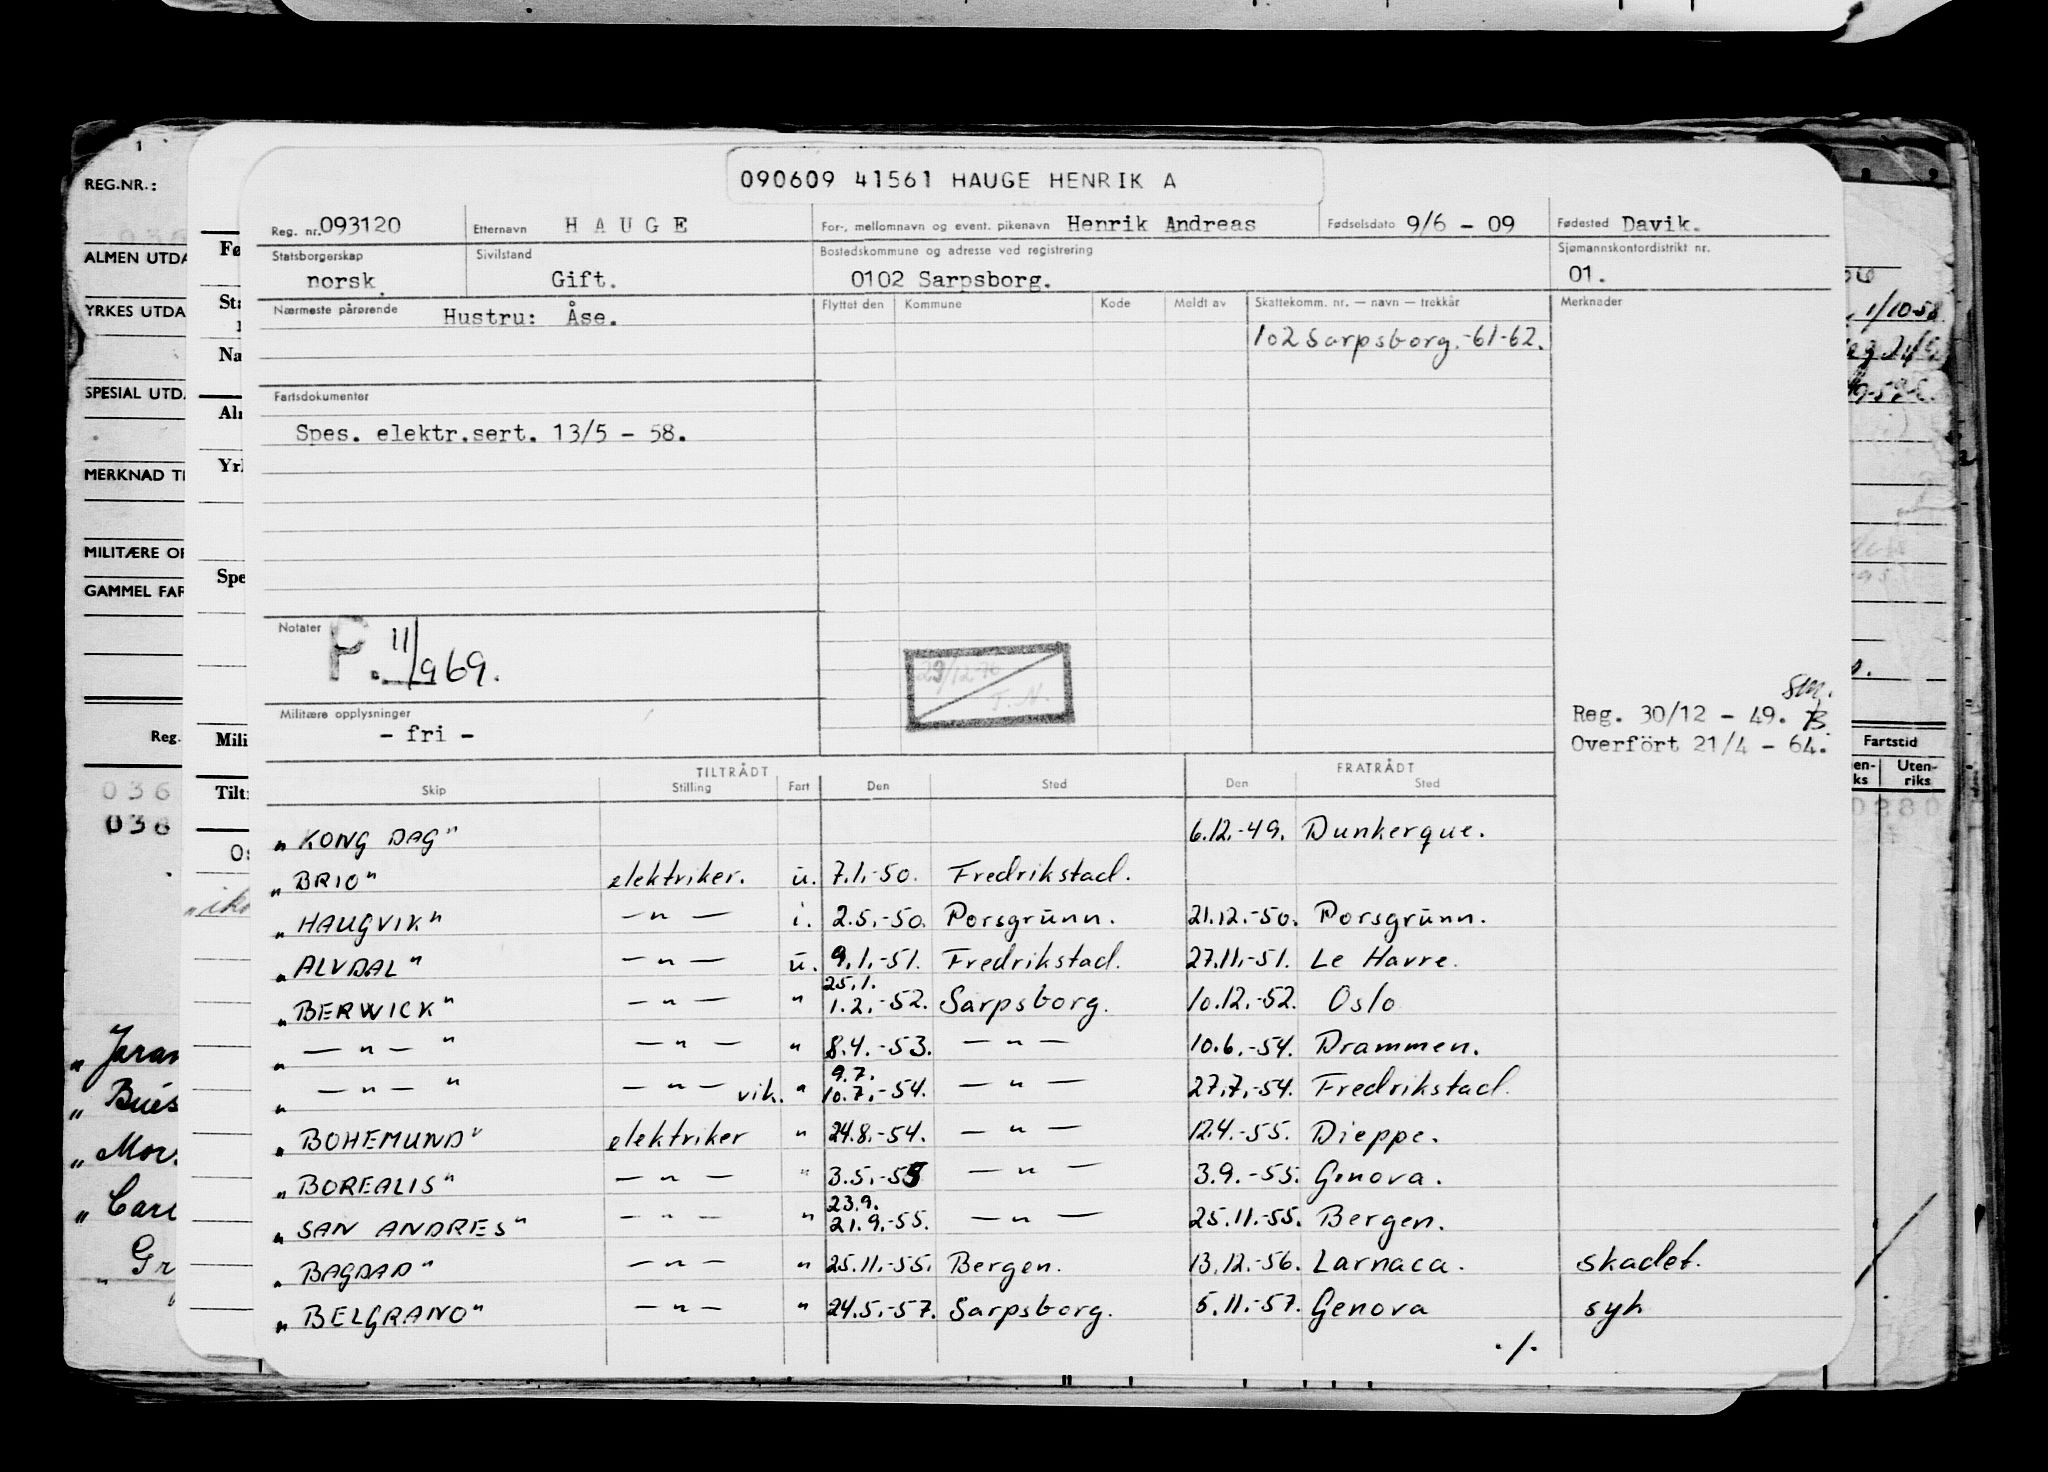 090609 41561 HAUGE HENRIK A
Reg. nr. 093120 Etternavn HAUGE For-, mellomnavn og event. pikenavn Henrik Andreas Fødselsdato 9/6 - 09 Fødested Davik.
Statsborgerskap norsk. Sivilstand Gift. Bostedskommune og adresse ved registrering 0102 Sarpsborg. Sjømannskontordistrikt nr. 01.
Nærmeste pårørende Hustru: Åse. Flyttet den Kommune Kode Meldt av Skattekomm. nr. — navn — trekkår Merknader
102 Sarpsborg.-61-62.
Fartsdokumenter
Spes. elektr.sert. 13/5 - 58.
Notater P. 11/969.
29/12-76 T.N.
Militære opplysninger
- fri -
sm.
Reg. 30/12 - 49. B.
Overført 21/4 - 64.
TILTRÅDT FRATRÅDT
Skip Stilling Fart Den Sted Den Sted
„KONG DAG" 6.12.-49. Dunkerque.
„BRIO" elektriker. u. 7.1.-50. Fredrikstad.
„HAUGVIK" — " — i. 2.5.-50. Porsgrunn. 21.12.-50. Porsgrunn.
„ALVDAL" — " — u. 9.1.-51. Fredrikstad. 27.11.-51. Le Havre.
25.1.
„BERWICK" — " — " 1.2.-52. Sarpsborg. 10.12.-52. Oslo
„ — " — " — " — " 8.4.-53. — " — 10.6.-54. Drammen.
9.7.
„ — " — " — " — vik. " 10.7.-54. — " — 27.7.-54. Fredrikstad.
„BOHEMUND" elektriker " 24.8.-54. — " — 12.4.-55. Dieppe.
„BOREALIS" — " — " 3.5.-55 — " — 3.9.-55. Genova.
23.9.
„SAN ANDRES" — " — " 21.9.-55. — " — 25.11.-55. Bergen.
„BAGDAD" — " — " 25.11.-55. Bergen. 13.12.-56. Larnaca. skadet.
„BELGRANO" — " — " 24.5.-57. Sarpsborg. 5.11.-57. Genova syk
./.
1
REG.NR.:
ALMEN UTDA
YRKES UTDA
SPESIAL UTD.
MERKNAD TI
MILITÆRE OP
GAMMEL FAR
Reg.
036
036
Fø
Sta
Na
Alm
Yrk
Spe
Mili
Tiltr
Os
1/10-58
Fartstid
en-ks Uten-riks